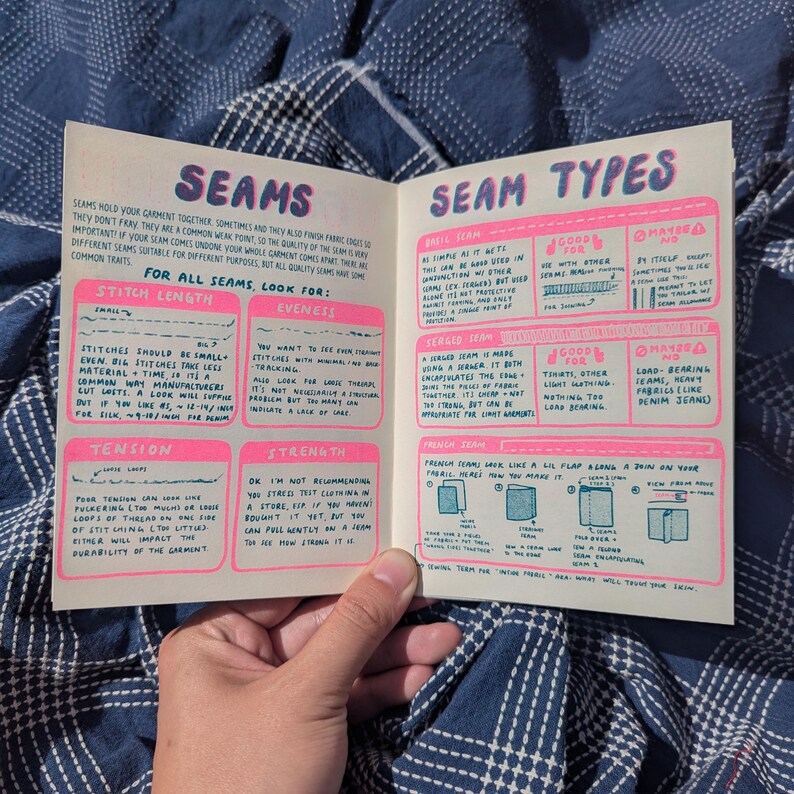 SEAMS
SEAMS HOLD YOUR GARMENT TOGETHER. SOMETIMES AND THEY ALSO FINISH FABRIC EDGES SO
THEY DON'T FRAY. THEY ARE A COMMON WEAK POINT, SO THE QUALITY OF THE SEAM IS VERY
IMPORTANT! IF YOUR SEAM COMES UNDONE YOUR WHOLE GARMENT COMES APART. THERE ARE
DIFFERENT SEAMS SUITABLE FOR DIFFERENT PURPOSES, BUT ALL QUALITY SEAMS HAVE SOME
COMMON TRAITS.
FOR ALL SEAMS, LOOK FOR:
STITCH LENGTH
SMALL
BIG
STITCHES SHOULD BE SMALL +
EVEN. BIG STITCHES TAKE LESS
MATERIAL + TIME, SO IT'S A
COMMON WAY MANUFACTURERS
CUT COSTS. A LOOK WILL SUFFICE
BUT IF YOU LIKE #S, ~ 12-14/INCH
FOR SILK, ~9-10/INCH FOR DENIM.
EVENESS
YOU WANT TO SEE EVEN, STRAIGHT
STITCHES WITH MINIMAL/NO BACK
-TRACKING.
ALSO LOOK FOR LOOSE THREADS.
IT'S NOT NECESSARILY A STRUCTURAL
PROBLEM BUT TOO MANY CAN
INDICATE A LACK OF CARE.
TENSION
LOOSE LOOPS
POOR TENSION CAN LOOK LIKE
PUCKERING (TOO MUCH) OR LOOSE
LOOPS OF THREAD ON ONE SIDE
OF STITCHING (TOO LITTLE).
EITHER WILL IMPACT THE
DURABILITY OF THE GARMENT.
STRENGTH
OK I'M NOT RECOMMENDING
YOU STRESS TEST CLOTHING IN
A STORE, ESP. IF YOU HAVEN'T
BOUGHT IT YET, BUT YOU
CAN PULL GENTLY ON A SEAM
TOO SEE HOW STRONG IT IS.
SEAM TYPES
BASIC SEAM
AS SIMPLE AS IT GETS
THIS CAN BE GOOD USED IN
CONJUNCTION W/ OTHER
SEAMS (EX. SERGED) BUT USED
ALONE IT'S NOT PROTECTIVE
AGAINST FRAYING, AND ONLY
PROVIDES A SINGLE POINT OF
PROTECTION.
GOOD
FOR
USE WITH OTHER
SEAMS.
FOR FINISHING
FOR JOINING
MAYBE
NO
BY ITSELF. EXCEPT:
SOMETIMES YOU'LL SEE
A SEAM LIKE THIS:
MEANT TO LET
YOU TAILOR W/
SEAM ALLOWANCE
SERGED SEAM
A SERGED SEAM IS MADE
USING A SERGER. IT BOTH
ENCAPSULATES THE EDGE +
JOINS THE PIECES OF FABRIC
TOGETHER. IT'S CHEAP + NOT
TOO STRONG, BUT CAN BE
APPROPRIATE FOR LIGHT GARMENTS.
GOOD
FOR
TSHIRTS, OTHER
LIGHT CLOTHING.
NOTHING TOO
LOAD BEARING.
MAYBE
NO
LOAD-BEARING
SEAMS, HEAVY
FABRICS (LIKE
DENIM JEANS)
FRENCH SEAM
FRENCH SEAMS LOOK LIKE A LIL FLAP ALONG A JOIN ON YOUR
FABRIC. HERE'S HOW YOU MAKE IT.
1
INSIDE
FABRIC
TAKE YOUR 2 PIECES
OF FABRIC + PUT THEM
"WRONG SIDES TOGETHER"
2
STRAIGHT
SEAM
SEW A SEAM CLOSE
TO THE EDGE
3
SEAM 1 (FROM
STEP 2)
SEAM 2
FOLD OVER +
SEW A SECOND
SEAM ENCAPSULATING
SEAM 1
4
VIEW FROM ABOVE
SEAM
FABRIC
SEWING TERM FOR "INSIDE FABRIC" AKA: WHAT WILL TOUCH YOUR SKIN.